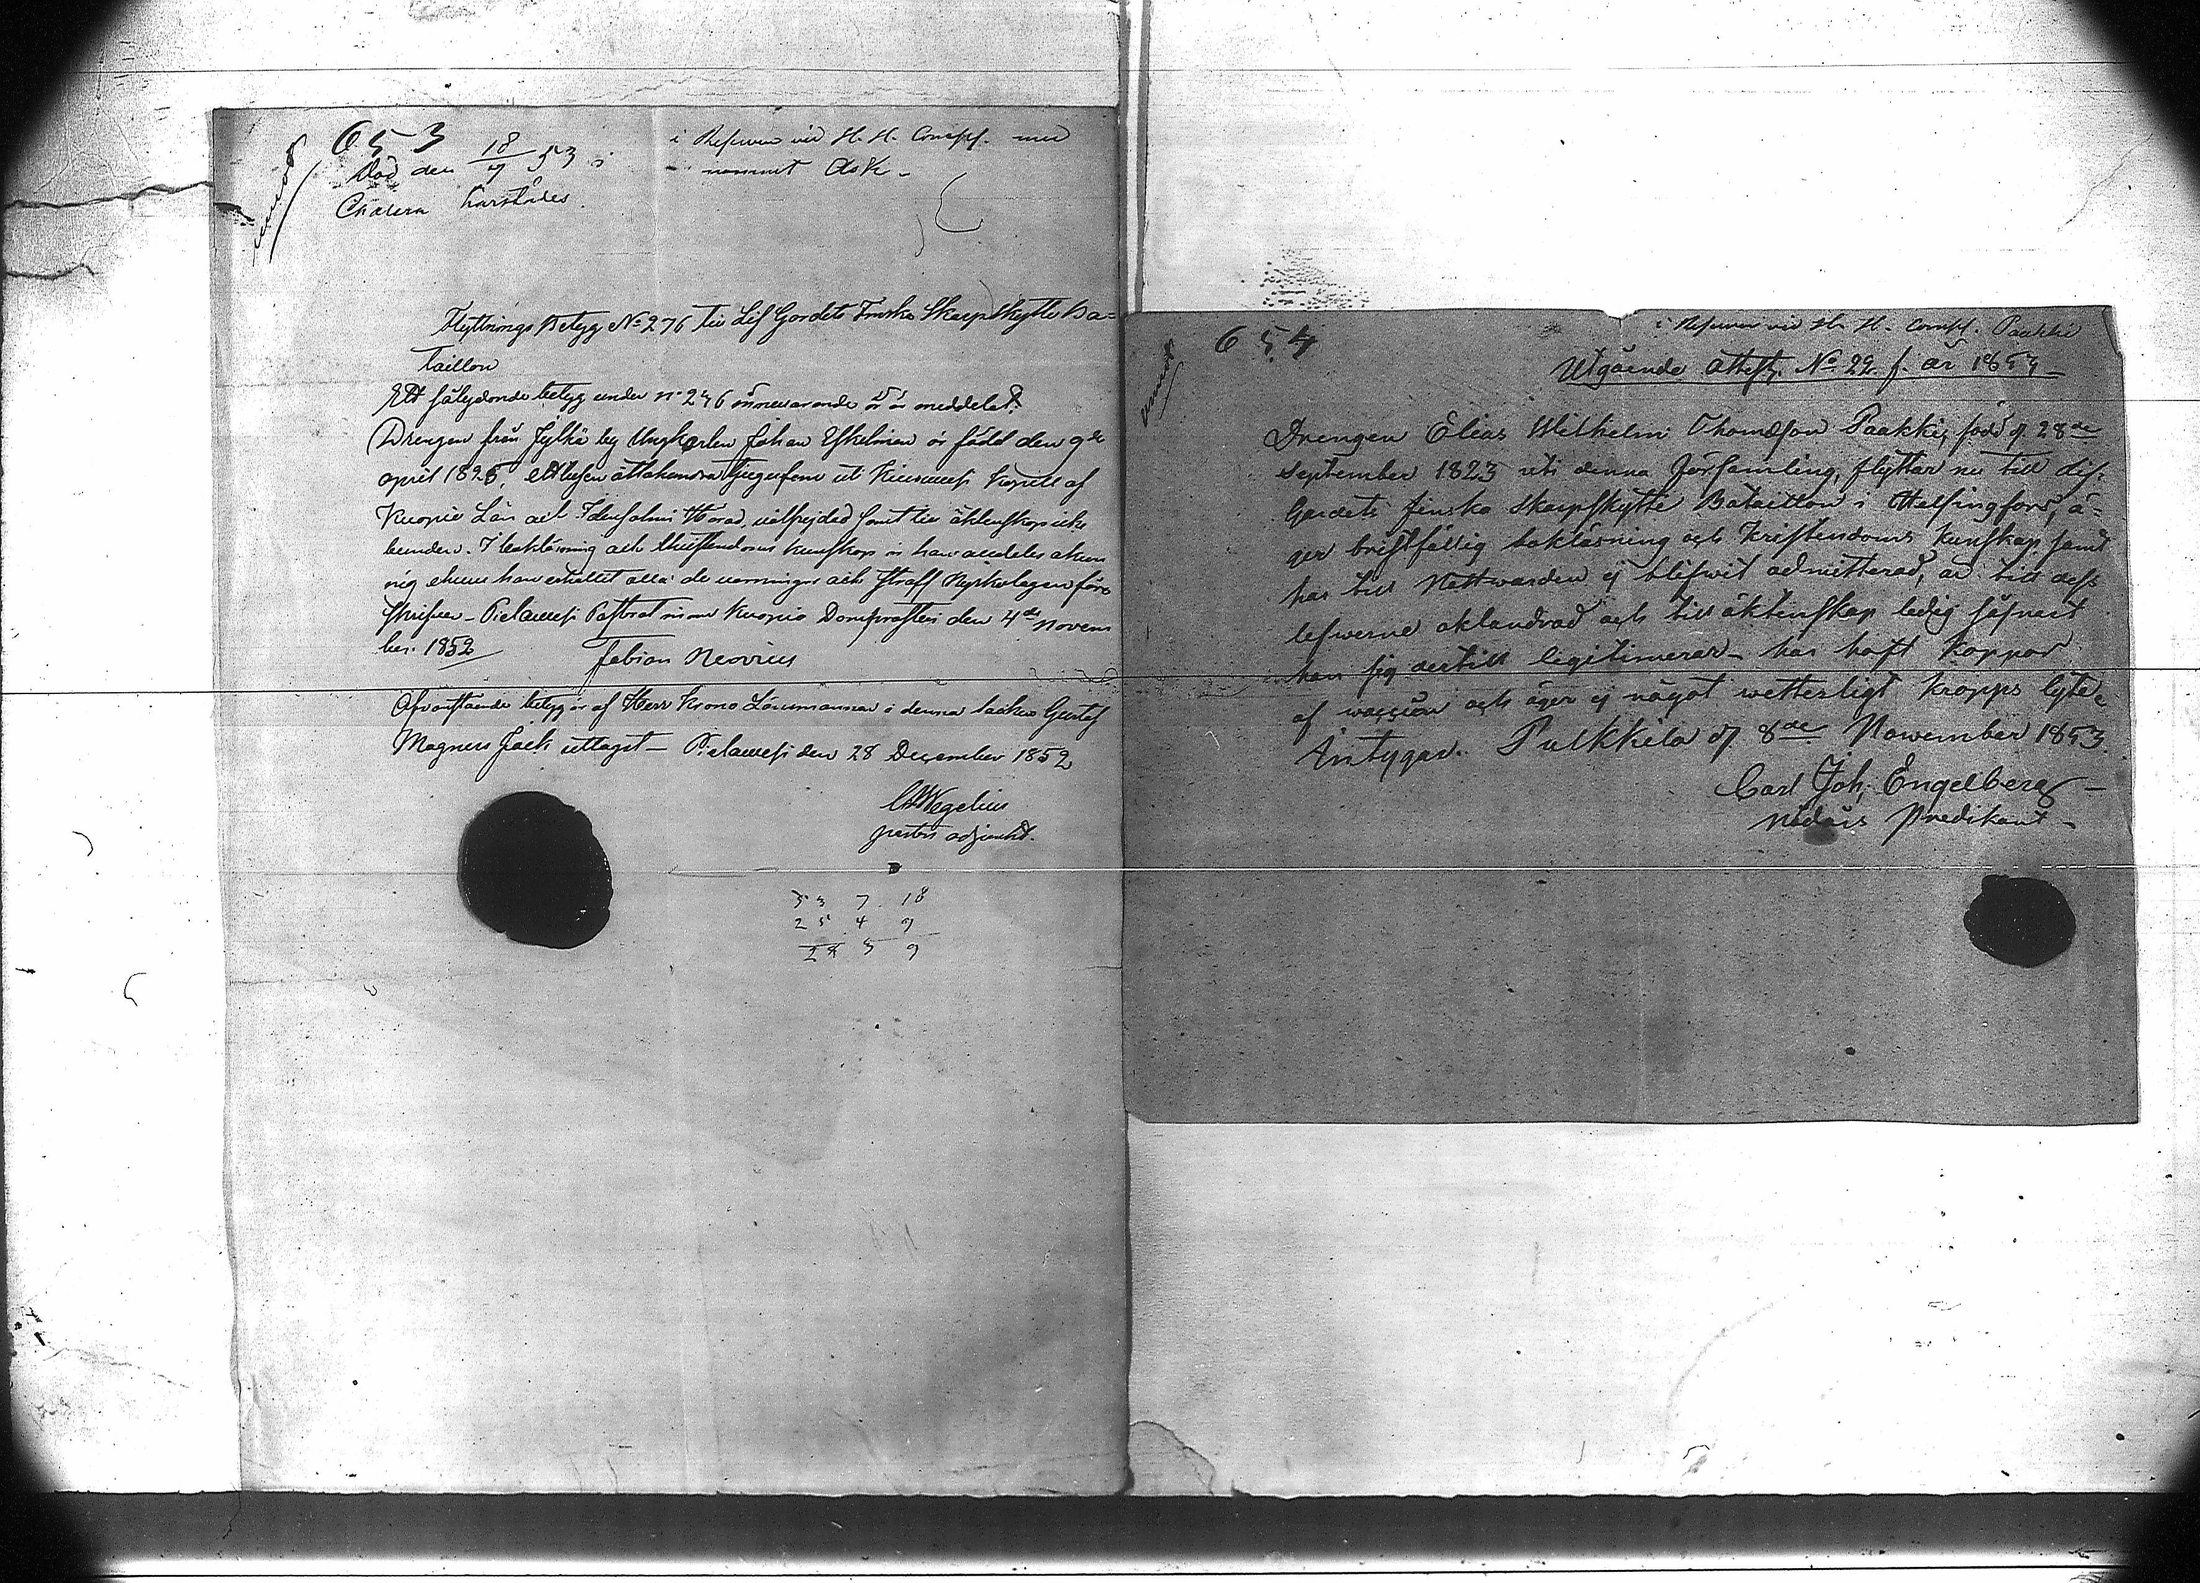 653
Död den 18/7 53 i
Cholera Farståles.
i Reserven vid H. H. Comp. med
namnet Ask -
Flyttnings Betyg No 276 till Lif Gardets Finska Skarpskytte Ba=
taillon
Ett sålydande betyg under no 276 innevarande år är meddelat:
Drengen från Jylkä by Ungkarlen Johan Eskelinen är född den 9de
april 1825, ett tusen åttahundra tjugufem uti Kiuruvesi Kapell af
Kuopio Län och Idensalmi Härad, välfrejdad samt till äktenskap icke
bunden. I bokläsning och Christendoms kunskap är han
nig ehuru han erhållit alla de varningar och straff Kyrkolagen före
skrifver - Pielavesi Pastorat inom Kuopio Domprosteri den 4de Novem
ber 1852
Fabian Neovius
Ofvanstående betyg är af Herr Krono Länsmannen i denna socken Gustaf
Magnus Jack uttaget - Pielavesi den 28 December 1852
Wegelius
pastors adjunkt.
53 7 18
25 4 9
28 3 9
654
i Reserven vid H. H. Comp. Paakki
Utgående Attest. No 22 f. år 1853
Drengen Elias Wilhelm Thomæson Paakki, född d. 28de
September 1823 uti denna Församling, flyttar nu till Lif-
Gardets finska Skarpskytte Bataillon i Helsingfors, ä-
ger bristfällig bokläsning och Kristendoms Kunskap samt
har till Nattwarden ej blifwit admitterad, är till dess
lefwerne oklandrad och till äktenskap ledig såframt
han sig dertill legitimerar - har haft Koppor
af waccin och äger ej något wetterligt Kropps lyte.
Intygar. Pulkkila d 8de November 1853.
Carl Joh. Engelberg -
Nådårs Predikant -